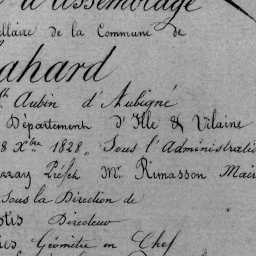 d'assemblage
ellaire de la Commune de
ahard
Aubin d'Aubigné
Département d'Ille & Vilaine
8 Xbre 1828 Sous l'Administratio
rzay Préfet Mr Rimasson Mair
Sous la Direction de
Directeur
Géomètre en Chef